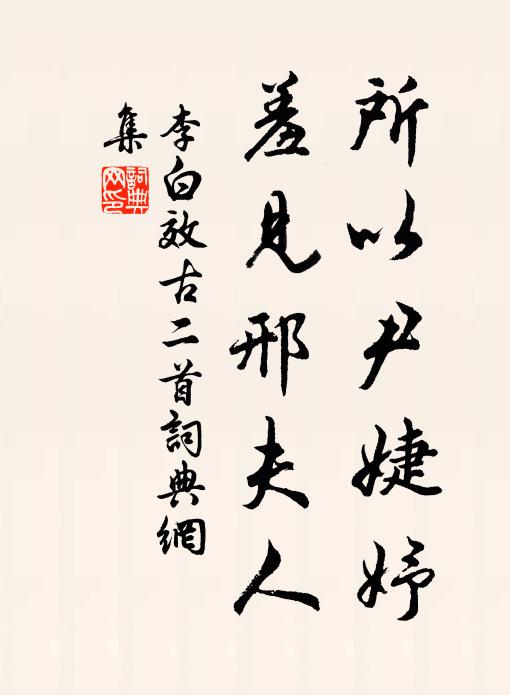 所以尹婕妤
羞見邢夫人
李白效古二首詞典網
集
詞典
网印